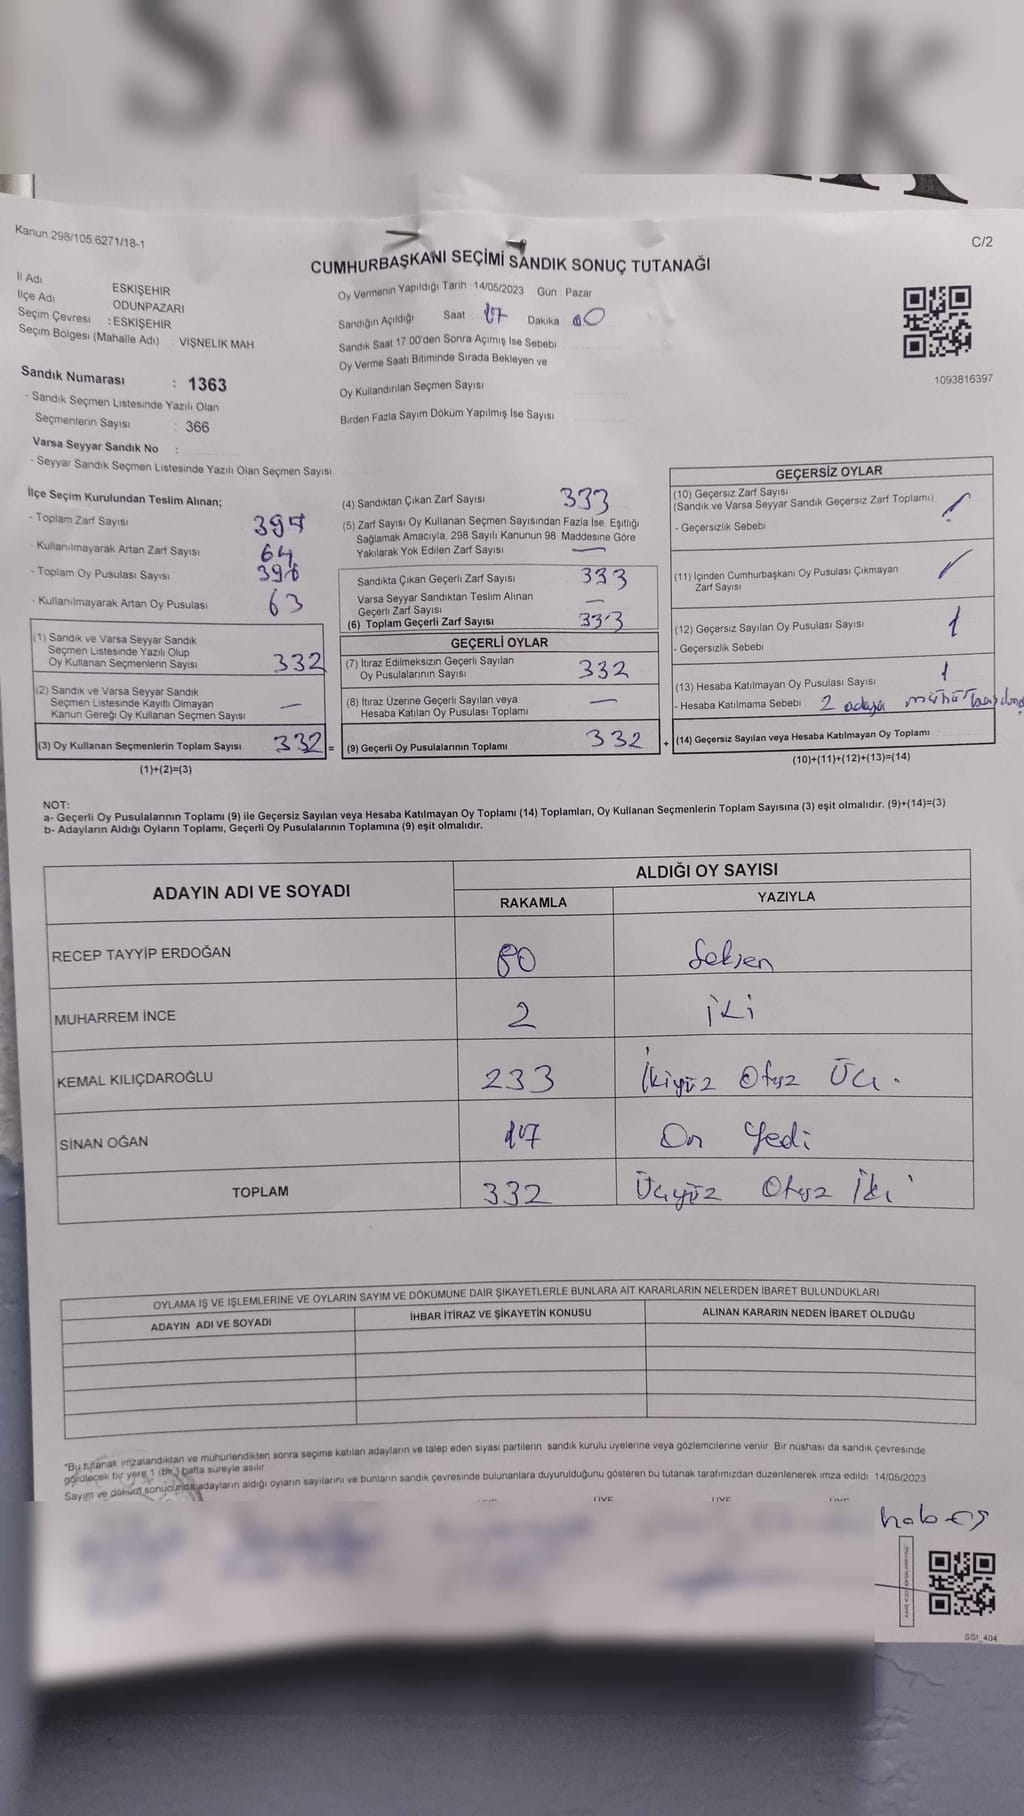 SANDIK
Kanun 298/105 6271/18-1
C/2
CUMHURBAŞKANI SEÇİMİ SANDIK SONUÇ TUTANAĞI
İl Adı ESKİŞEHİR
İlçe Adı ODUNPAZARI
Seçim Çevresi : ESKİŞEHİR
Seçim Bölgesi (Mahalle Adı) VİŞNELİK MAH
Oy Vermenin Yapıldığı Tarih : 14/05/2023 Gün : Pazar
Sandığın Açıldığı Saat 17 Dakika 00
Sandık Saat 17.00'den Sonra Açımış İse Sebebi
Oy Verme Saati Bitiminde Sırada Bekleyen ve
Oy Kullandırılan Seçmen Sayısı
Birden Fazla Sayım Döküm Yapılmış İse Sayısı
1093816397
Sandık Numarası : 1363
- Sandık Seçmen Listesinde Yazılı Olan
Seçmenlerin Sayısı : 366
Varsa Seyyar Sandık No :
- Seyyar Sandık Seçmen Listesinde Yazılı Olan Seçmen Sayısı
İlçe Seçim Kurulundan Teslim Alınan;
- Toplam Zarf Sayısı 397
- Kullanılmayarak Artan Zarf Sayısı 64
- Toplam Oy Pusulası Sayısı 396
- Kullanılmayarak Artan Oy Pusulası 63
(1) Sandık ve Varsa Seyyar Sandık
Seçmen Listesinde Yazılı Olup
Oy Kullanan Seçmenlerin Sayısı 332
(2) Sandık ve Varsa Seyyar Sandık
Seçmen Listesinde Kayıtlı Olmayan
Kanun Gereği Oy Kullanan Seçmen Sayısı —
(3) Oy Kullanan Seçmenlerin Toplam Sayısı 332 =
(1)+(2)=(3)
(4) Sandıktan Çıkan Zarf Sayısı 333
(5) Zarf Sayısı Oy Kullanan Seçmen Sayısından Fazla İse, Eşitliği
Sağlamak Amacıyla, 298 Sayılı Kanunun 98. Maddesine Göre
Yakılarak Yok Edilen Zarf Sayısı —
Sandıkta Çıkan Geçerli Zarf Sayısı 333
Varsa Seyyar Sandıktan Teslim Alınan
Geçerli Zarf Sayısı —
(6) Toplam Geçerli Zarf Sayısı 333
GEÇERLİ OYLAR
(7) İtiraz Edilmeksizin Geçerli Sayılan
Oy Pusulalarının Sayısı 332
(8) İtiraz Üzerine Geçerli Sayılan veya
Hesaba Katılan Oy Pusulası Toplamı —
(9) Geçerli Oy Pusulalarının Toplamı 332 +
GEÇERSİZ OYLAR
(10) Geçersiz Zarf Sayısı
(Sandık ve Varsa Seyyar Sandık Geçersiz Zarf Toplamı)
- Geçersizlik Sebebi
(11) İçinden Cumhurbaşkanı Oy Pusulası Çıkmayan
Zarf Sayısı
(12) Geçersiz Sayılan Oy Pusulası Sayısı 1
- Geçersizlik Sebebi
(13) Hesaba Katılmayan Oy Pusulası Sayısı 1
- Hesaba Katılmama Sebebi 2 adaya mühür
(14) Geçersiz Sayılan veya Hesaba Katılmayan Oy Toplamı
(10)+(11)+(12)+(13)=(14)
NOT:
a- Geçerli Oy Pusulalarının Toplamı (9) ile Geçersiz Sayılan veya Hesaba Katılmayan Oy Toplamı (14) Toplamları, Oy Kullanan Seçmenlerin Toplam Sayısına (3) eşit olmalıdır. (9)+(14)=(3)
b- Adayların Aldığı Oyların Toplamı, Geçerli Oy Pusulalarının Toplamına (9) eşit olmalıdır.
ADAYIN ADI VE SOYADI
ALDIĞI OY SAYISI
RAKAMLA YAZIYLA
RECEP TAYYİP ERDOĞAN 80 Seksen
MUHARREM İNCE 2 İki
KEMAL KILIÇDAROĞLU 233 İkiyüz Otuz Üç.
SİNAN OĞAN 17 On Yedi
TOPLAM 332 Üçyüz Otuz İki
OYLAMA İŞ VE İŞLEMLERİNE VE OYLARIN SAYIM VE DÖKÜMÜNE DAİR ŞİKAYETLERLE BUNLARA AİT KARARLARIN NELERDEN İBARET BULUNDUKLARI
ADAYIN ADI VE SOYADI İHBAR İTİRAZ VE ŞİKAYETİN KONUSU ALINAN KARARIN NEDEN İBARET OLDUĞU
*Bu tutanak imzalandıktan ve mühürlendikten sonra seçime katılan adayların ve talep eden siyasi partilerin sandık kurulu üyelerine veya gözlemcilerine verilir. Bir nüshası da sandık çevresinde
görülecek bir yere 1 (bir) hafta süreyle asılır.
Sayım ve döküm sonucunda adayların aldığı oyların sayılarını ve bunların sandık çevresinde bulunanlara duyurulduğunu gösteren bu tutanak tarafımızdan düzenlenerek imza edildi. 14/05/2023
SSI_404